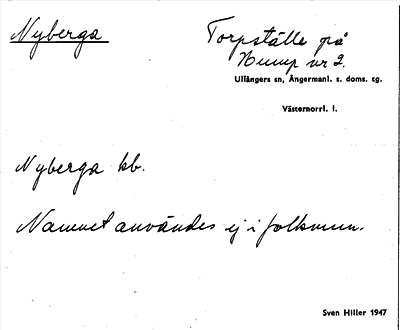 Nyberga
Torpställe på
Hump nr 2.
Ullångers sn, Ångermanl. s. doms. tg.
Västernorrl. l.
Nyberga kb.
Namnet användes ej i folkmun.
Sven Hiller 1947